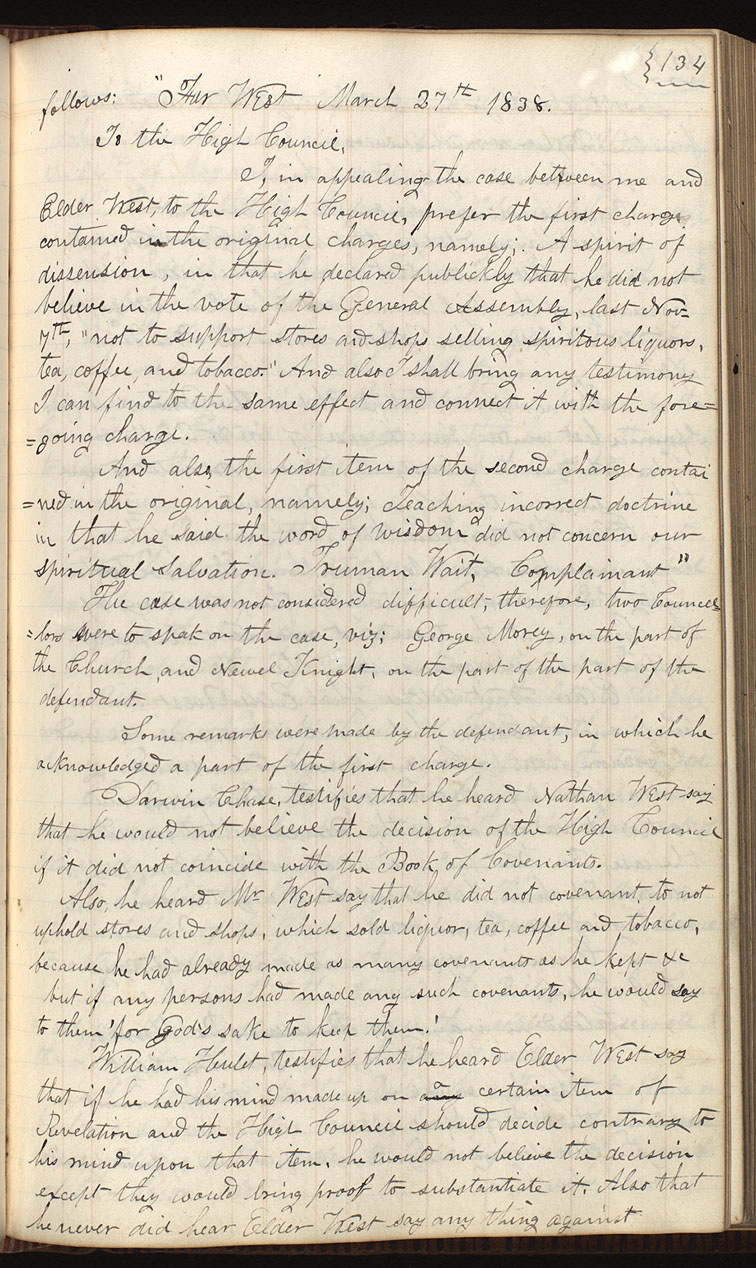 134
follows: "Far West March 27th 1838.
To the High Council,
I, in appealing the case between me and
Elder West, to the High Council, prefer the first charge
contained in the original charges, namely; A spirit of
dissension, in that he declared publickly that he did not
believe in the vote of the General Assembly, last Nov-
7th, "not to support stores and shops selling spiritous liquors,
tea, coffee, and tobacco." And also I shall bring any testimony
I can find to the same effect and connect it with the fore=
=going charge.
And also, the first item of the second charge contai
=ned in the original, namely; Teaching incorrect doctrine
in that he said the word of wisdom did not concern our
spiritual Salvation. Truman Wait, Complainant"
The case was not considered difficult; therefore, two Councel=
=lors were to speak on the case, viz; George Morey, on the part of
the Church, and Newel Knight, on the part of the part of the
defendant.
Some remarks were made by the defendant, in which he
acknowledged a part of the first charge.
Darwin Chase, testifies that he heard Nathan West say
that he would not believe the decision of the High Council
if it did not coincide with the Book of Covenants.
Also, he heard Mr West say that he did not covenant, to not
uphold stores and shops, which sold liquor, tea, coffee and tobacco,
because he had already made as many covenants as he kept &c
but if any persons had made any such covenants, he would say
to them 'for God's sake to keep them.'
William Hulet, testifies that he heard Elder West say
that if he had his mind made up on a certain item of
Revelation and the High Council should decide contrary to
his mind upon that item, he would not believe the decision
except they would bring proof to substantiate it. Also that
he never did hear Elder West say any thing against